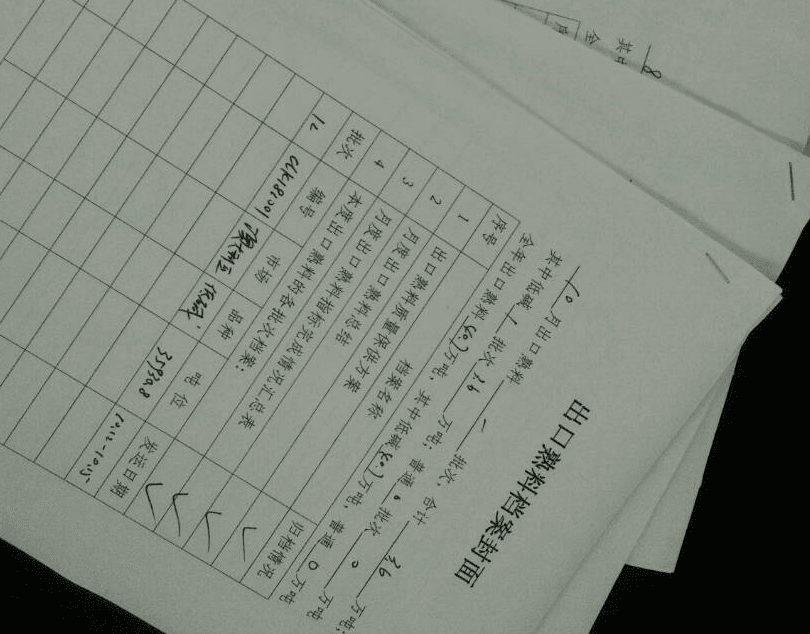 出口熟料档案封面
10 月出口熟料 一 批次, 合计 3.6 万吨;
其中低碱 1 批次 3.6 万吨; 普通 0 批次 0 万吨
全年出口熟料 40.7 万吨, 其中低碱 40.7 万吨, 普通 0 万吨
序号 档案名称 归档情况
1 出口熟料质量保供方案 ✓
2 月度出口熟料总结 ✓
3 月度出口熟料指标完成情况汇总表 ✓
4 本度出口熟料的各批次档案: ✓
批次 编号 市场 品种 吨位 发运日期
12 低碱 35938 10.12-10.15
其中
全